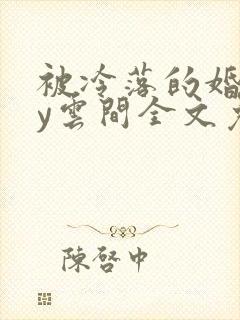 被冷落的婚
y雲間全文
陳啓中